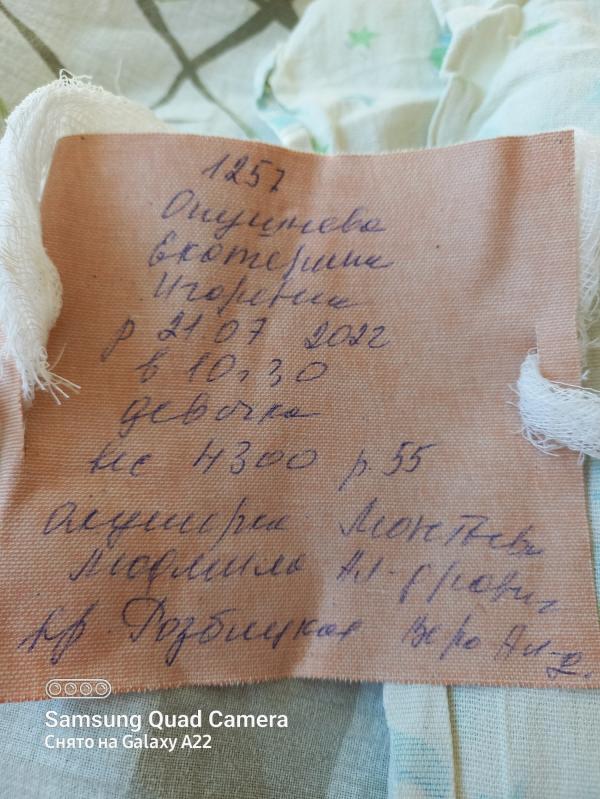 1257
Екатерина
Игоревна
р 21 07 2022
в 10ч30
девочка
вес 4300 р 55
акушерка
Людмила Ал-дровн
вр. Розблицкая Вера Ал-др.
Samsung Quad Camera
Снято на Galaxy A22